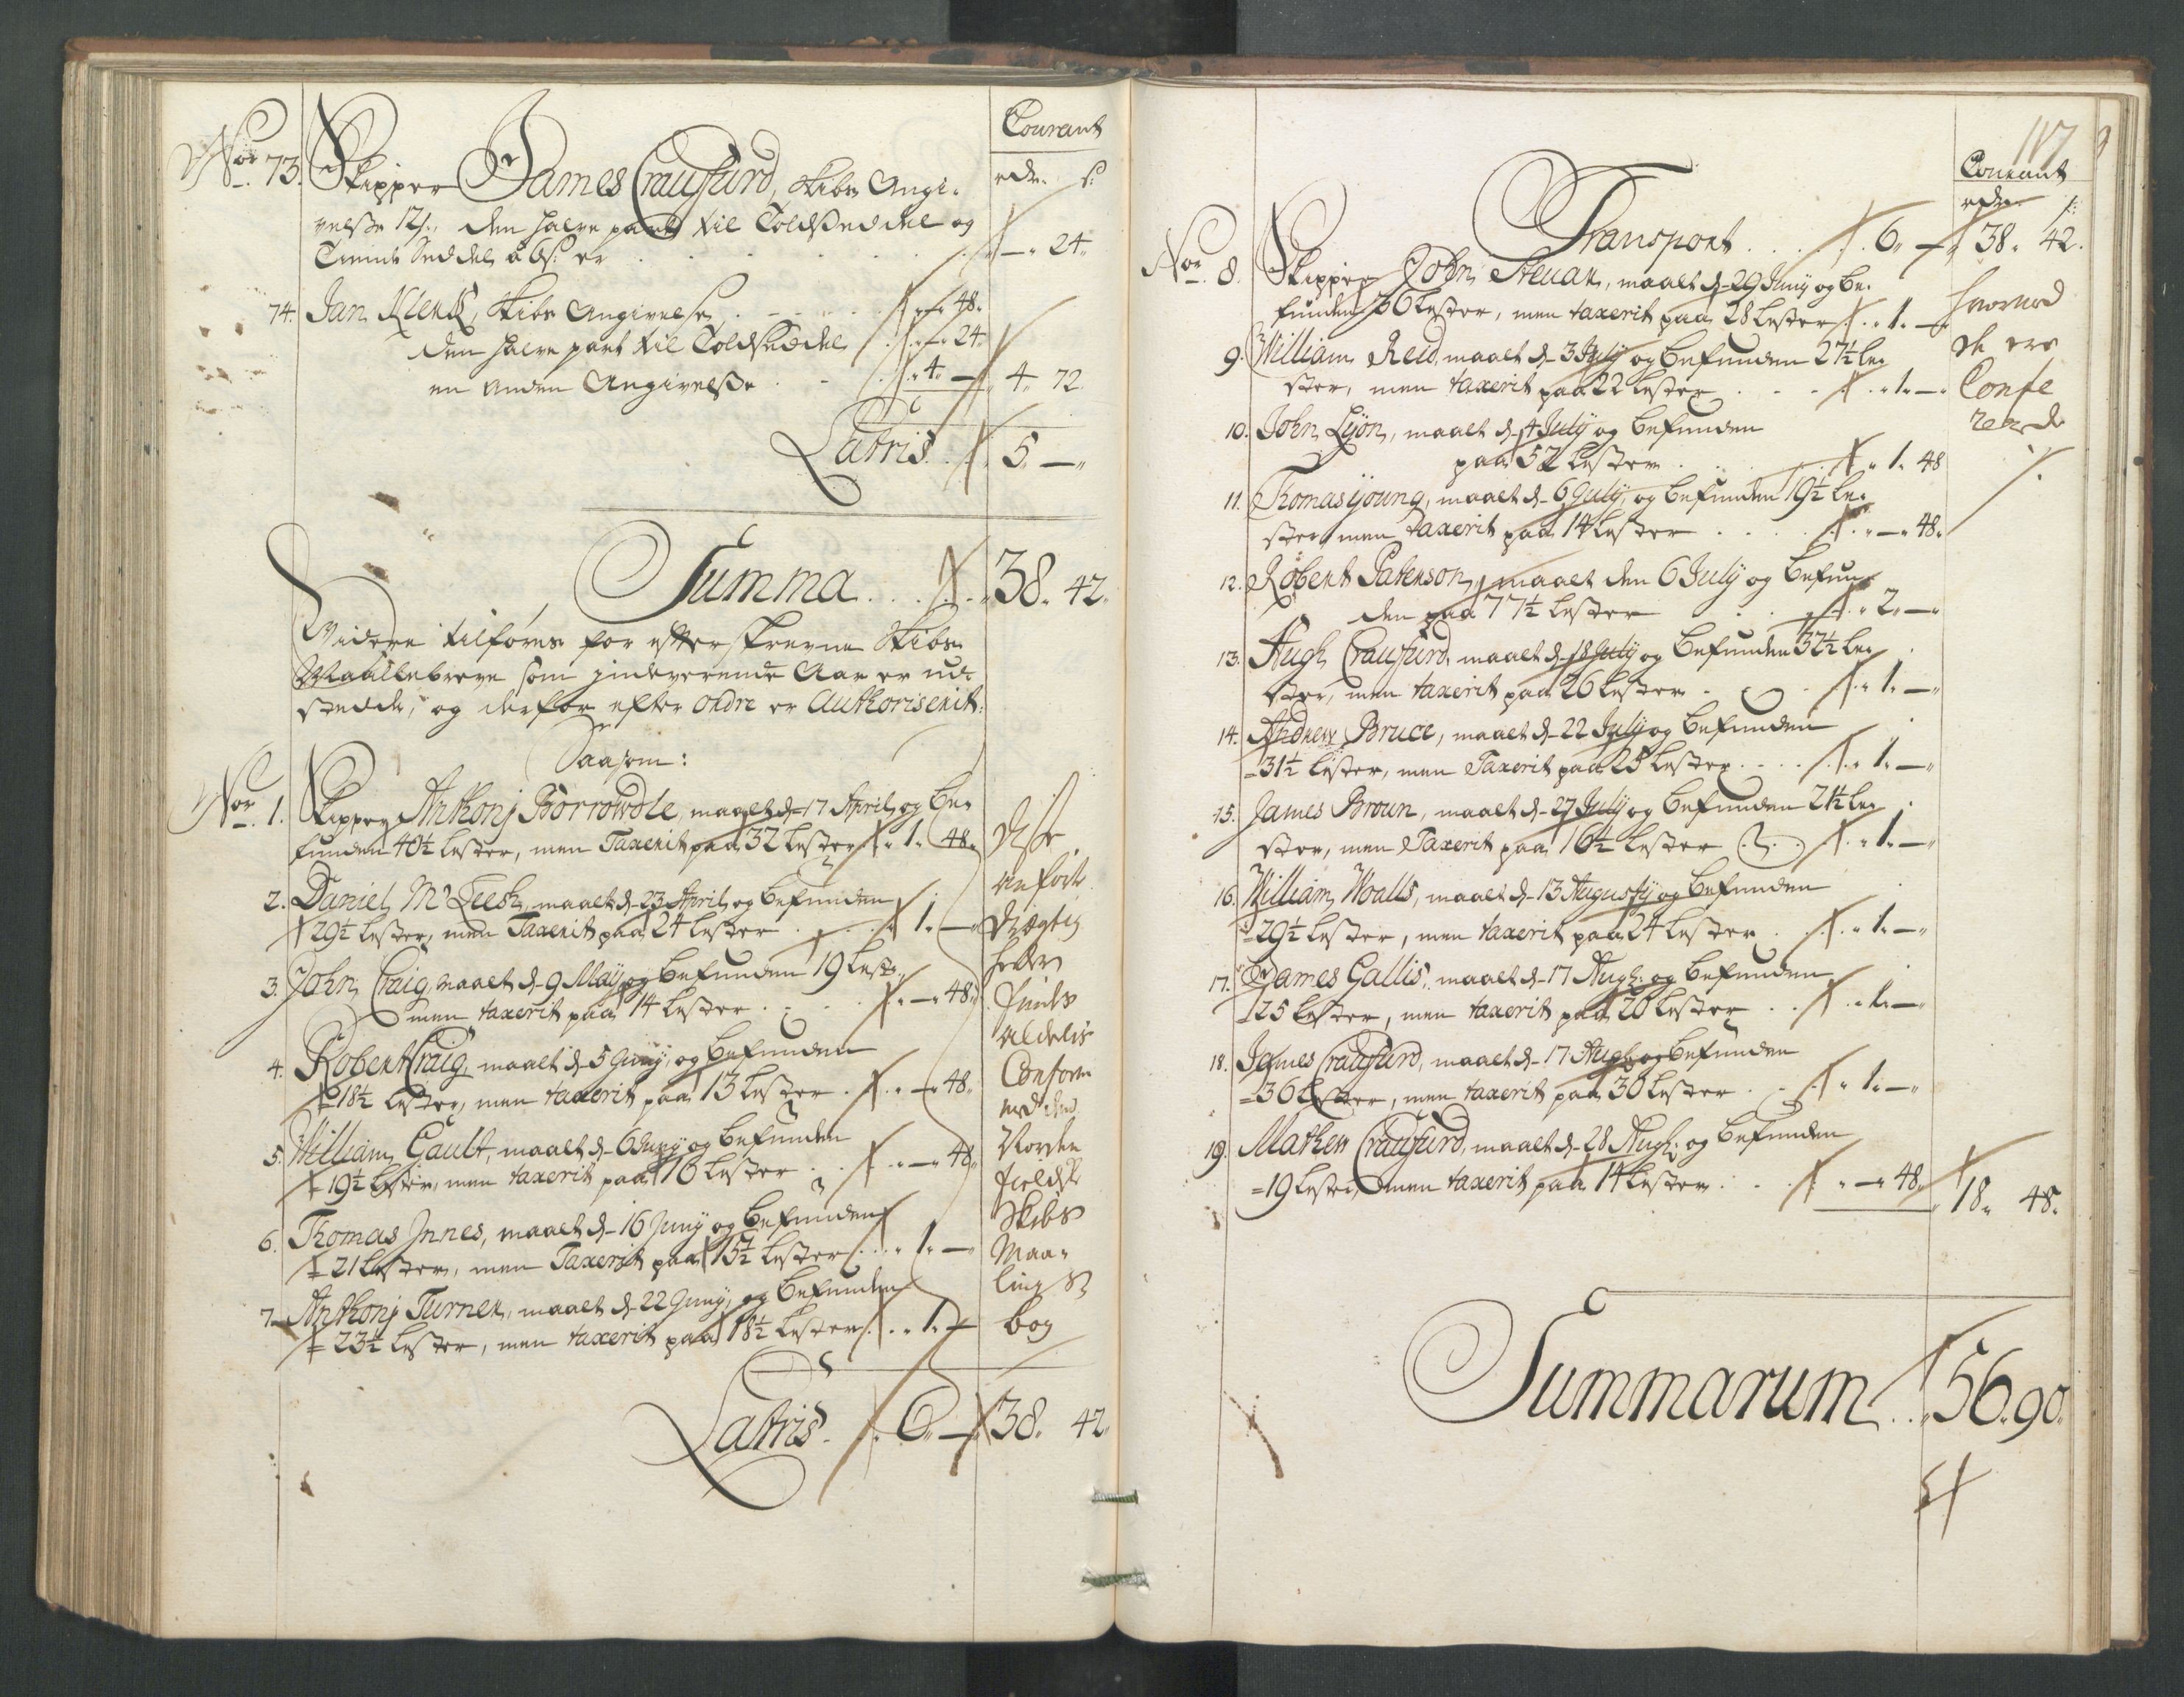 Courant
rdr. s:
Nor. 73. Skipper James Craufurd, Skibs Angi-
velse 12s., den halve part til Toldseddel og
Tiende Seddel a 6s: er — 24.
74. Jan Klenk, Skibs Angivelse — 48.
den halve part til Toldseddel — 24.
en anden Angivelse 4. — 4. 72.
Latris 5. —
Summa 38. 42.
Videre tilføres for efterskrevne Skibs
Maallebreve som indeverende Aar er ud-
stedde, og derfor efter ordre er Authoriserit.
Saasom:
Nor. 1. Skipper Anthonj Borrowdle, maalt d. 17 April og be-
funden 40½ lester, men Taxerit paa 32 lester 1. 48.
2. Daniel Mc Leesh, maalt d. 23 April og befunden
29½ lester, men Taxerit paa 24 lester 1. —
3. John Craig, maalt d. 9 Maij og befunden 19 lest.
men taxerit paa 14 lester — 48.
4. Robert Craig, maalt d. 5 Junij, og befunden
18½ lester, men taxerit paa 13 lester — 48.
5. William Gault, maalt d. 6 Junij og befunden
19½ lester, men taxerit paa 16 lester — 48.
6. Thomas Jnnes, maalt d. 16 Junij og befunden
21 lester, men Taxerit paa 15½ lester 1. —
7. Anthonj Turner, maalt d. 22 Junij, og befunden
23½ lester, men taxerit paa 18½ lester 1. —
Disse
anførte
Drægtig
heder
findes
aldelis
Conform
med den
Norden
fieldske
Skibs
Maa-
lings
bog
Latris 6. — 38. 42.
117
Courant
rdr. s:
Transport 6. — 38. 42.
Nor. 8. Skipper John Steuart, maalt d. 29 Junij og be-
funden 36 lester, men taxerit paa 28 lester 1. —
9. William Reid, maalt d. 3 Julij og befunden 27½ le-
ster, men taxerit paa 22 lester 1. —
10. John Lyon, maalt d. 4 Julij og befunden
paa 52 lester 1. 48
11. Thomas Young, maalt d. 6 Julij, og befunden 19½ le-
ster, men taxerit paa 14 lester — 48.
12. Robert Paterson, maalt den 6 Julij og befun-
den paa 77½ lester 2. —
13. Hugh Craufurd, maalt d. 18 Julij og befunden 32½ le-
ster, men taxerit paa 26 lester 1. —
14. Andrew Bruce, maalt d. 22 Julij og befunden
31½ lester, men Taxerit paa 25 lester 1. —
15. James Broun, maalt d. 27 Julij og befunden 21½ le-
ster, men Taxerit paa 16½ lester 1. —
16. William Walls, maalt d. 13 Augustij og befunden
29½ lester, men taxerit paa 24 lester 1. —
17. James Gallis, maalt d. 17 Augs: og befunden
25 lester, men taxerit paa 20 lester 1. —
18. James Craufurd, maalt d. 17 Augs: og befunden
36 lester, men taxerit paa 30 lester 1. —
19. Mathew Craufurd, maalt d. 28 Augs: og befunden
19 lester, men taxerit paa 14 lester — 48. 18. 48.
hvormed
de ere
Confe
rerede
Summarum 56. 90.